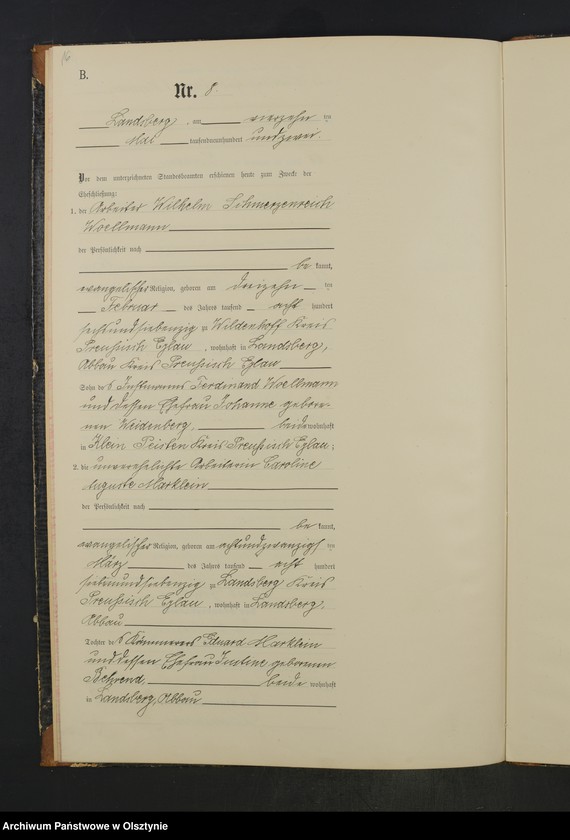 16
B.
Nr. 8.
Landsberg, am vierzehnten
Mai tausendneunhundert undzwei.
Vor dem unterzeichneten Standesbeamten erschienen heute zum Zwecke der
Eheschließung:
1. der Arbeiter Wilhelm Schmerzenreich
Woellmann
der Persönlichkeit nach
bekannt,
evangelischer Religion, geboren am dreizehnten
Februar des Jahres tausend acht hundert
sechsundsiebenzig zu Wildenhoff Kreis
Preußisch Eylau, wohnhaft in Landsberg,
Abbau Kreis Preußisch Eylau
Sohn des Instmanns Ferdinand Woellmann
und dessen Ehefrau Johanne gebore-
nen Weidenberg, beide wohnhaft
in Klein Peisten Kreis Preußisch Eylau;
2. die unverehelichte Arbeiterin Caroline
Auguste Marklein
der Persönlichkeit nach
bekannt,
evangelischer Religion, geboren am achtundzwanzigsten
März des Jahres tausend acht hundert
siebenundsiebenzig zu Landsberg Kreis
Preußisch Eylau, wohnhaft in Landsberg,
Abbau
Tochter des Kämmerers Eduard Marklein
und dessen Ehefrau Justine geborenen
Behrend, beide wohnhaft
in Landsberg, Abbau
Archiwum Państwowe w Olsztynie